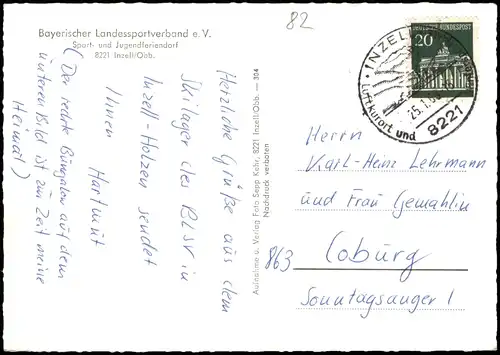 Bayerischer Landessportverband e. V.
Sport- und Jugendferiendorf
8221 Inzell/Obb.
82
DEUTSCHE BUNDESPOST
20
INZELL
Luftkurort und
25.1.
8221
Herzliche Grüße aus dem
Skilager des BLSV in
Inzell-Holzen sendet
Ihnen
Hartmut
(Der rechte Bungalow auf dem
unteren Bild ist zur Zeit meine
Heimat)
Aufnahme u. Verlag Foto Sepp Kehr, 8221 Inzell/Obb. — 304
Nachdruck verboten
Herrn
Karl-Heinz Lehrmann
und Frau Gemahlin
863 Coburg
Sonntagsanger 1